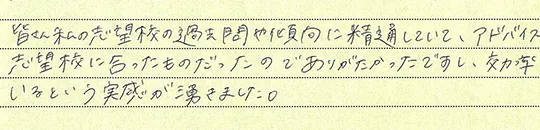 皆さん私の志望校の過去問や傾向に精通していて、アドバイス
志望校に合ったものだったのでありがたかったですし、効率
いるという実感が湧きました。